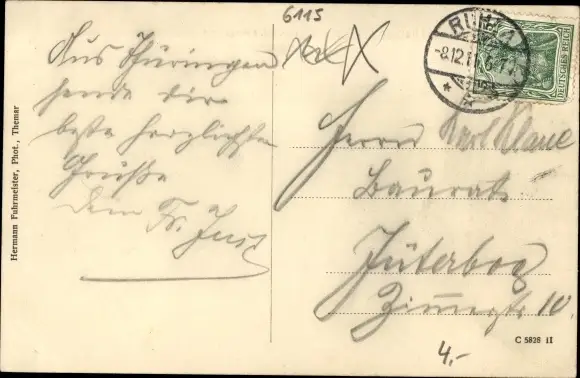 6115
Aus Thüringen
sende dir
beste herzlichste
Grüße
Dein Fr. Just
RUHLA
-8.12.1
DEUTSCHES REICH
Herrn Karl Klaue
Baurat
Jüterbog
Zinnaerstr 10.
Hermann Fuhrmeister, Phot., Themar
C 5828 II
4,-